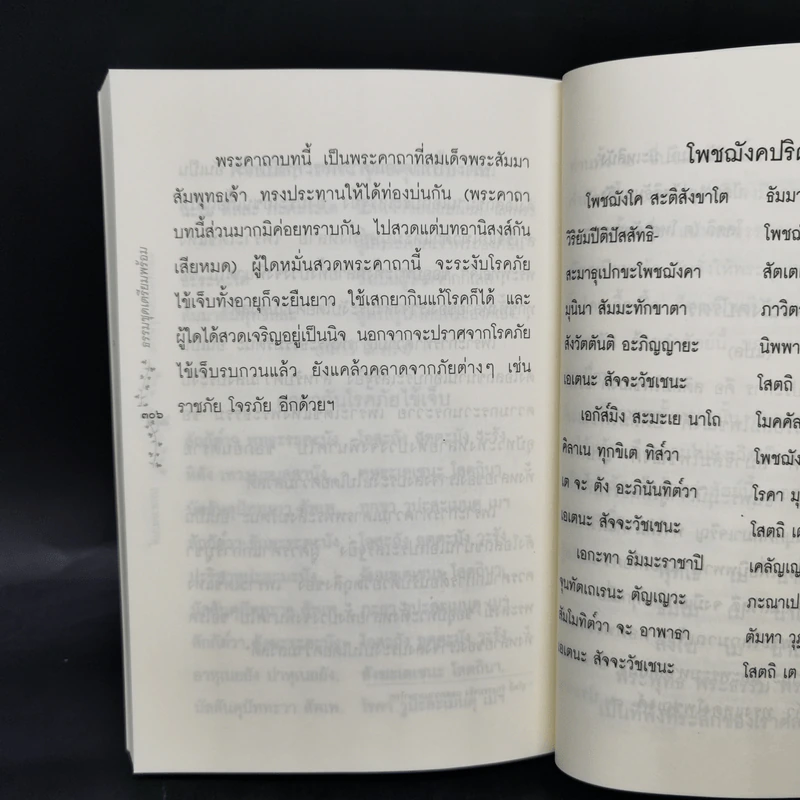 พระคาถาบทนี้ เป็นพระคาถาที่สมเด็จพระสัมมา
สัมพุทธเจ้า ทรงประทานให้ได้ท่องบ่นกัน (พระคาถา
บทนี้ส่วนมากมิค่อยทราบกัน ไปสวดแต่บทอานิสงส์กัน
เสียหมด) ผู้ใดหมั่นสวดพระคาถานี้ จะระงับโรคภัย
ไข้เจ็บทั้งอายุก็จะยืนยาว ใช้เสกยากินแก้โรคก็ได้ และ
ผู้ใดได้สวดเจริญอยู่เป็นนิจ นอกจากจะปราศจากโรคภัย
ไข้เจ็บรบกวนแล้ว ยังแคล้วคลาดจากภัยต่างๆ เช่น
ราชภัย โจรภัย อีกด้วยฯ
ธรรมชุดเตรียมพร้อม
๓๐๖
โพชฌังคปริต
โพชฌังโค สะติสังขาโต ธัมมา
วิริยัมปีติปัสสัทธิ- โพชฌั
สะมาธุเปกขะโพชฌังคา สัตเต
มุนินา สัมมะทักขาตา ภาวิตา
สังวัตตันติ อะภิญญายะ นิพพา
เอเตนะ สัจจะวัชเชนะ โสตถิ
เอกัส๎มิง สะมะเย นาโถ โมคคัล
คิลาเน ทุกขิเต ทิส๎วา โพชฌัง
เต จะ ตัง อะภินันทิต๎วา โรคา มุ
เอเตนะ สัจจะวัชเชนะ โสตถิ เต
เอกะทา ธัมมะราชาปิ เคลัญเญ
จุนทัตเถเรนะ ตัญเญวะ ภะณาเป
สัมโมทิต๎วา จะ อาพาธา ตัมหา วุฏ
เอเตนะ สัจจะวัชเชนะ โสตถิ เต